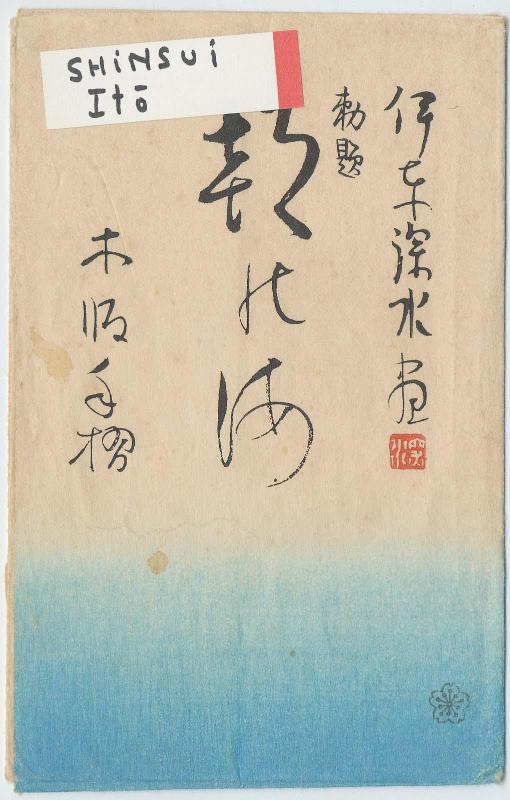 SHiNSUi
Itō
伊東深水画
深水
勅題
朝の海
木版手摺